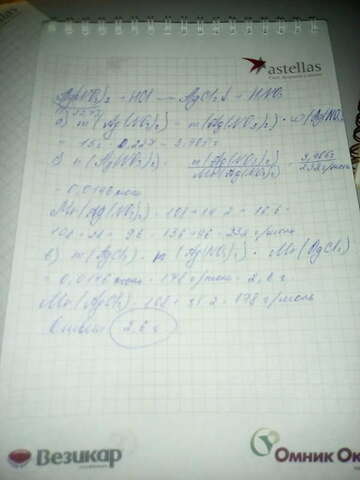 astellas
Ag(NO3)2 + HCl → AgCl2↓ + HNO3
а) m(Ag(NO3)2) = m(Ag(NO3)2) · ω(AgNO3
б) n(Ag(NO3)2) = m(Ag(NO3)2) / Mr(Ag(NO3)2)
= 0,0146 моль
Mr(Ag(NO3)2) = 108 + 14·2 + 16·6 =
108 + 28 + 96 = 136 + 96 = 232 г/моль
в) m(AgCl2) = n(Ag(NO3)2) · Mr(AgCl2)
= 0,0146 моль · 178 г/моль = 2,6 г
Mr(AgCl2) = 108 + 35·2 = 178 г/моль
Ответ: 2,6 г
Везикар
Омник Ок